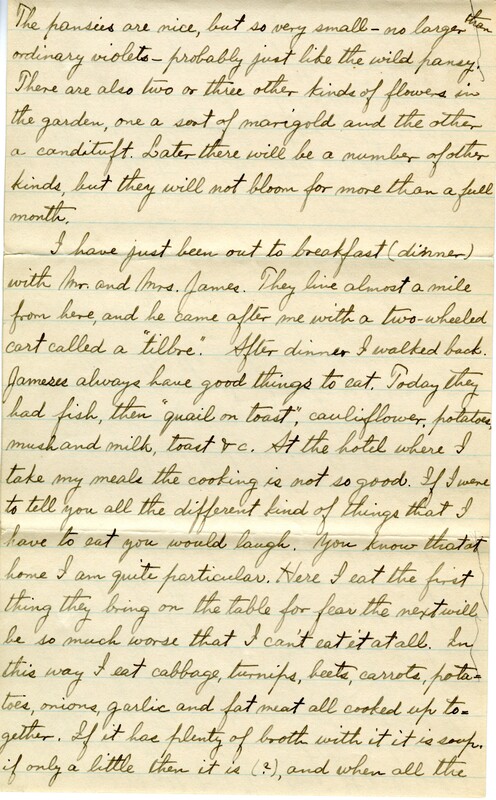 The pansies are nice, but so very small - no larger than
ordinary violets - probably just like the wild pansy.
There are also two or three other kinds of flowers in
the garden, one a sort of marigold and the other
a candituft. Later there will be a number of other
kinds, but they will not bloom for more than a full
month.
I have just been out to breakfast (dinner)
with Mr. and Mrs. James. They live almost a mile
from here, and he came after me with a two-wheeled
cart called a "tilbre". After dinner I walked back.
Jameses always have good things to eat. Today they
had fish, then "quail on toast", cauliflower, potatoes,
mush and milk, toast & c. At the hotel where I
take my meals the cooking is not so good. If I were
to tell you all the different kind of things that I
have to eat you would laugh. You know that at
home I am quite particular. Here I eat the first
thing they bring on the table for fear the next will
be so much worse that I can't eat it at all. In
this way I eat cabbage, turnips, beets, carrots, pota=
toes, onions, garlic and fat meat all cooked up to=
gether. If it has plenty of broth with it it is soup,
if only a little then it is (?), and when all the